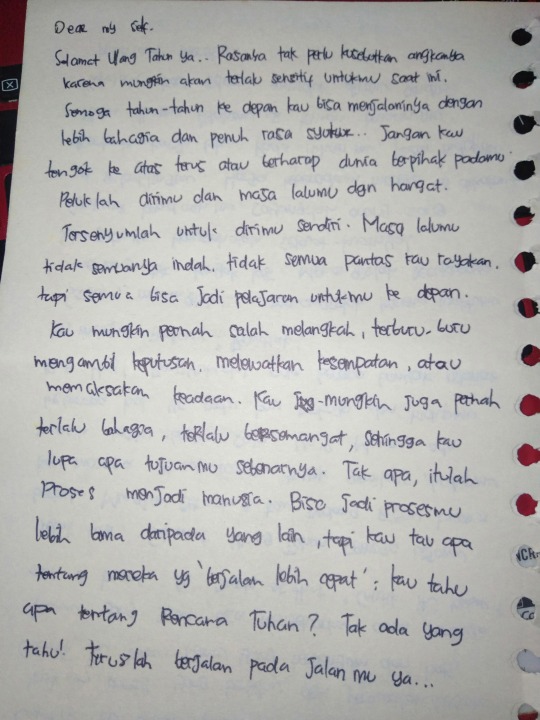 Dear my Self.
Selamat Ulang Tahun ya.. Rasanya tak perlu kusebutkan angkanya
karena mungkin akan terlalu sensitif untukmu saat ini.
Semoga tahun-tahun ke depan kau bisa menjalaninya dengan
lebih bahagia dan penuh rasa syukur... Jangan kau
tengok ke atas terus atau berharap dunia berpihak padamu
Peluklah dirimu dan masa lalumu dgn hangat.
Tersenyumlah untuk dirimu sendiri. Masa lalumu
tidak semuanya indah, tidak semua pantas kau rayakan,
tapi semua bisa jadi pelajaran untukmu ke depan.
Kau mungkin pernah salah melangkah, terburu-buru
mengambil keputusan, melewatkan kesempatan, atau
memaksakan keadaan. Kau mungkin juga pernah
terlalu bahagia, terlalu bersemangat, sehingga kau
lupa apa tujuanmu sebenarnya. Tak apa, itulah
Proses menjadi manusia. Bisa jadi prosesmu
lebih lama daripada yang lain, tapi kau tau apa
tentang mereka yg 'berjalan lebih cepat'; kau tahu
apa tentang Rencana Tuhan? Tak ada yang
tahu! Teruslah berjalan pada jalan mu ya...